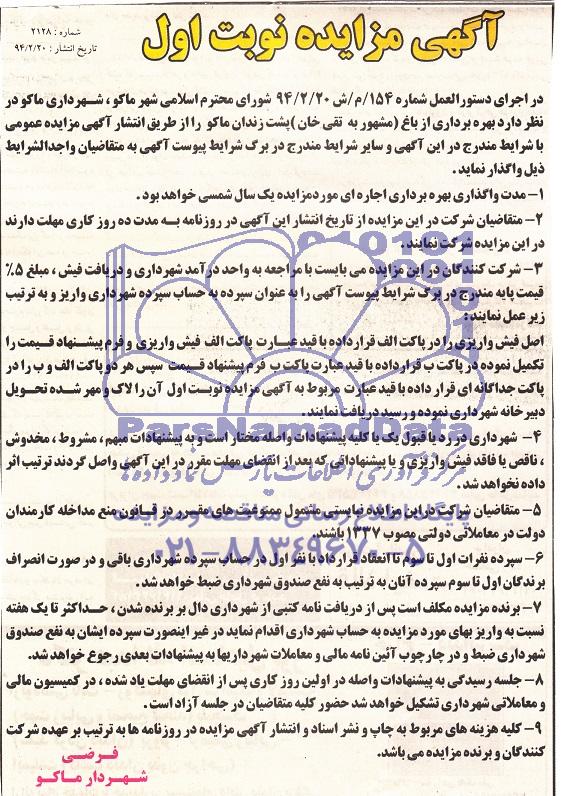 آگهی مزایده نوبت اول
شماره : ۲۱۲۸
تاریخ انتشار : ۹۴/۲/۲۰
در اجرای دستورالعمل شماره ۱۵۴/م/ش ۹۴/۲/۲۰ شورای محترم اسلامی شهر ماکو ، شهرداری ماکو در
نظر دارد بهره برداری از باغ (مشهور به تقی خان )پشت زندان ماکو را از طریق انتشار آگهی مزایده عمومی
با شرایط مندرج در این آگهی و سایر شرایط مندرج در برگ شرایط پیوست آگهی به متقاضیان واجدالشرایط
ذیل واگذار نماید .
۱- مدت واگذاری بهره برداری اجاره ای موردمزایده یک سال شمسی خواهد بود .
۲- متقاضیان شرکت در این مزایده از تاریخ انتشار این آگهی در روزنامه به مدت ده روز کاری مهلت دارند
در این مزایده شرکت نمایند .
۳- شرکت کنندگان در این مزایده می بایست با مراجعه به واحد درآمد شهرداری و دریافت فیش ، مبلغ ۵٪
قیمت پایه مندرج در برگ شرایط پیوست آگهی را به عنوان سپرده به حساب سپرده شهرداری واریز و به ترتیب
زیر عمل نمایند :
اصل فیش واریزی را در پاکت الف قرار داده با قید عبارت پاکت الف فیش واریزی و فرم پیشنهاد قیمت را
تکمیل نموده در پاکت ب قرارداده با قید عبارت پاکت ب فرم پیشنهاد قیمت سپس هر دو پاکت الف و ب را در
پاکت جداگانه ای قرار داده با قید عبارت مربوط به آگهی مزایده نوبت اول آن را لاک و مهر شده تحویل
دبیرخانه شهرداری نموده و رسید دریافت نمایند .
۴- شهرداری در رد یا قبول یک یا کلیه پیشنهادات واصله مختار است و به پیشنهادات مبهم ، مشروط ، مخدوش
، ناقص یا فاقد فیش واریزی و یا پیشنهاداتی که بعد از انقضای مهلت مقرر در این آگهی واصل گردند ترتیب اثر
داده نخواهد شد .
۵- متقاضیان شرکت در این مزایده نبایستی مشمول ممنوعیت های مقرر در قانون منع مداخله کارمندان
دولت در معاملاتی دولتی مصوب ۱۳۳۷ باشند .
۶- سپرده نفرات اول تا سوم تا انعقاد قرارداد با نفر اول در حساب سپرده شهرداری باقی و در صورت انصراف
برندگان اول تا سوم سپرده آنان به ترتیب به نفع صندوق شهرداری ضبط خواهد شد .
۷- برنده مزایده مکلف است پس از دریافت نامه کتبی از شهرداری دال بر برنده شدن ، حداکثر تا یک هفته
نسبت به واریز بهای مورد مزایده به حساب شهرداری اقدام نماید در غیر اینصورت سپرده ایشان به نفع صندوق
شهرداری ضبط و در چارچوب آئین نامه مالی و معاملات شهرداریها به پیشنهادات بعدی رجوع خواهد شد.
۸- جلسه رسیدگی به پیشنهادات واصله در اولین روز کاری پس از انقضای مهلت یاد شده ، در کمیسیون مالی
و معاملاتی شهرداری تشکیل خواهد شد حضور کلیه متقاضیان در جلسه آزاد است .
۹- کلیه هزینه های مربوط به چاپ و نشر اسناد و انتشار آگهی مزایده در روزنامه ها به ترتیب بر عهده شرکت
کنندگان و برنده مزایده می باشد.
فرضی
شهردار ماکو
ParsNamadData
مرکز فرآوری اطلاعات پارس نماد داده ها
پایگاه اطلاع رسانی مناقصه و مزایده
۰۲۱-۸۸۳۴۹۶۷۰-۵